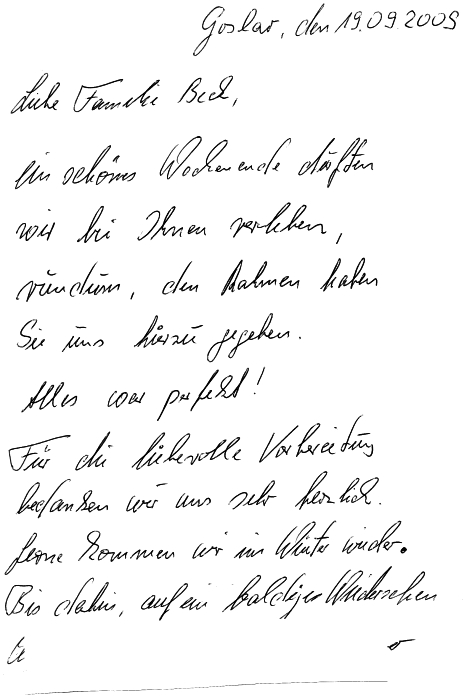 Goslar, den 19.09.2009
Liebe Familie Beck,
ein schönes Wochenende dürften
wir bei Ihnen verleben,
rundum, den Rahmen haben
Sie uns hierzu gegeben.
Alles war perfekt!
Für die liebevolle Vorbereitung
bedanken wir uns sehr herzlich.
Gerne kommen wir im Winter wieder.
Bis dahin, auf ein baldiges Wiedersehen